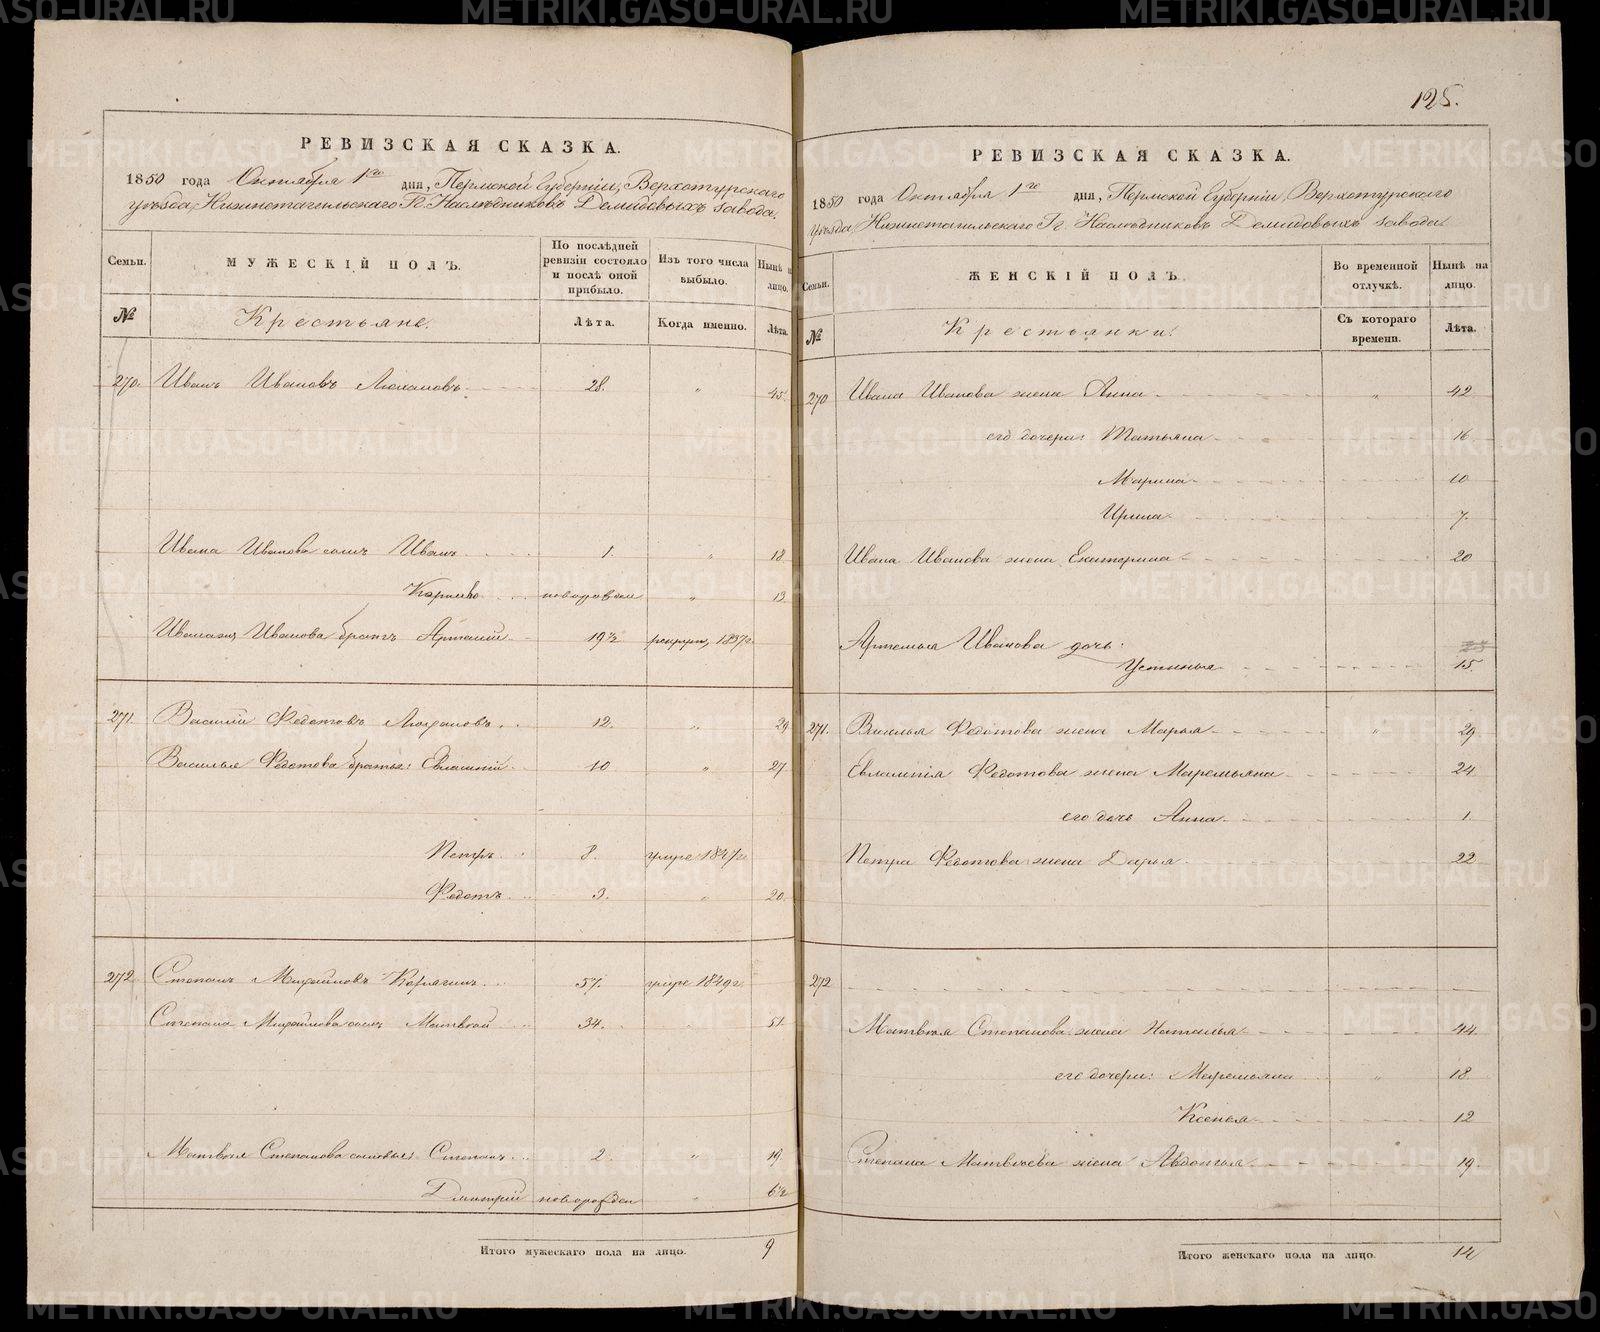 125.
РЕВИЗСКАЯ СКАЗКА.
1850 года Октября 1го дня, Пермской Губерніи, Верхотурского
уѣзда, Нижнетагильского Гг. Наслѣдниковъ Демидовыхъ завода.
Семьи. МУЖЕСКІЙ ПОЛЪ. По послѣдней ревизіи состояло и послѣ оной прибыло. Изъ того числа выбыло. Нынѣ на лицо.
№ Крестьяне. Лѣта. Когда именно. Лѣта.
270. Иванъ Ивановъ 28. " 45.
Ивана Иванова сынъ Иванъ 1. " 18
новорожден " 13
Ивана Иванова братъ Артемій 19½ рекрут, 1837г.
271. Василій Федотовъ 12. " 29
Василья Федотова братья: Евлампій 10 " 27.
Петръ 8. умре 1847г.
Федотъ 3. " 20.
272 Степанъ Михайловъ Корягинъ 57. умре 1849г.
Степана Михайлова сынъ Матвѣй 34. " 51
Матвѣя Степанова сыновья: Степанъ 2 " 19.
Дмитрій новорожден " 6½
Итого мужескаго пола на лицо. 9
РЕВИЗСКАЯ СКАЗКА.
1850 года Октября 1го дня, Пермской Губерніи, Верхотурского
уѣзда, Нижнетагильского Гг. Наслѣдниковъ Демидовыхъ завода.
Семьи. ЖЕНСКІЙ ПОЛЪ. Во временной отлучкѣ. Нынѣ на лицо.
№ Крестьянки. Съ котораго времени. Лѣта.
270 Ивана Иванова жена Анна " 42
его дочери: Татьяна 16
Марина 10
Ирина 7.
Ивана Иванова жена Екатерина 20
Артемья Иванова дочь:
Устинья 15.
271. Василья Федотова жена Марья " 29
Евлампія Федотова жена Маремьяна 24
его дочь Анна 1.
Петра Федотова жена Дарья 22
272
Матвѣя Степанова жена Наталья 44
его дочери: Маремьяна " 18
Ксенья 12
Степана Матвѣева жена Авдотья 19.
Итого женскаго пола на лицо. 14
METRIKI.GASO-URAL.RU